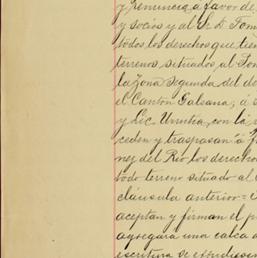 y renuncia a favor de
y socios y al Sr. D. Tom
todos los derechos que tien
terrenos situados al Pon
la Zona Segunda del de
el Canton Galeana; á s
y Lic. Urrutia, con la s
ceden y traspasan á F
nez del Rio los derecho
todo terreno situado al
cláusula anterior.
aceptan y firman el p
agregara una calca d
escritura de